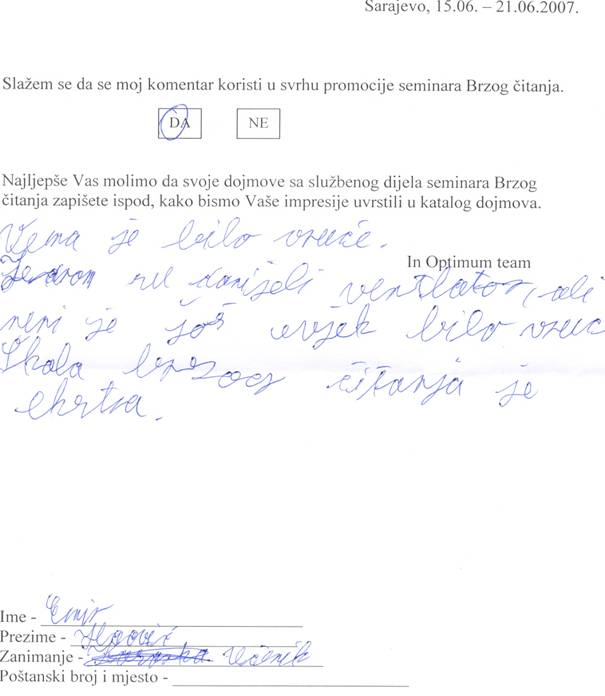 Sarajevo, 15.06. – 21.06.2007.
Slažem se da se moj komentar koristi u svrhu promocije seminara Brzog čitanja.
DA NE
Najljepše Vas molimo da svoje dojmove sa službenog dijela seminara Brzog
čitanja zapišete ispod, kako bismo Vaše impresije uvrstili u katalog dojmova.
Vema je bilo vruće.
In Optimum team
su donijeli ventlator, ali
meni je još uvjek bilo vruc
Škola brzog čitanja je
ekstra.
Ime - Emir
Prezime -
Zanimanje - Učenik
Poštanski broj i mjesto -